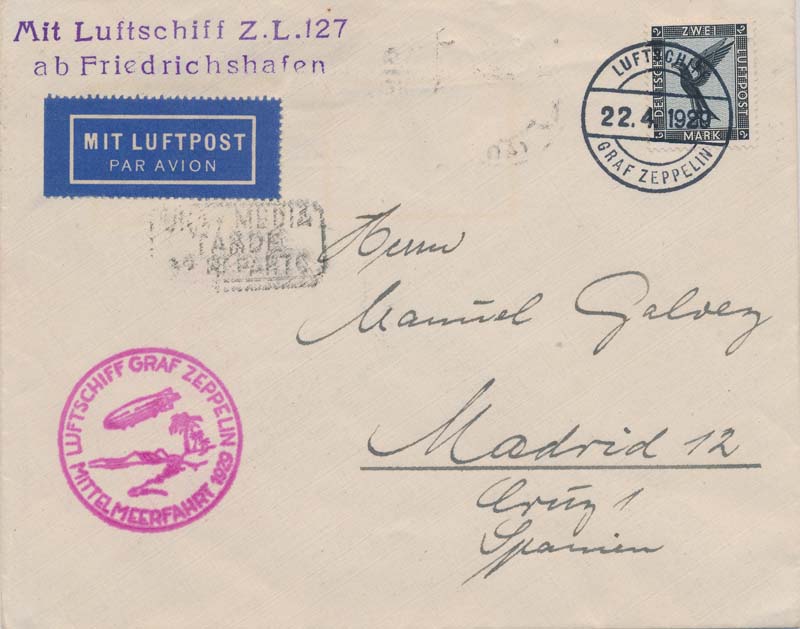 Mit Luftschiff Z.L.127
ab Friedrichshafen
MIT LUFTPOST
PAR AVION
2 ZWEI 2
DEUTSCHE LUFTPOST
2 MARK 2
LUFTSCHIFF
22.4.1929
GRAF ZEPPELIN
MEDIA
TARDE
REPARTO
Herrn
Manuel Galvez
Madrid 12
Cruz 1
Spanien
LUFTSCHIFF GRAF ZEPPELIN
MITTELMEERFAHRT 1929